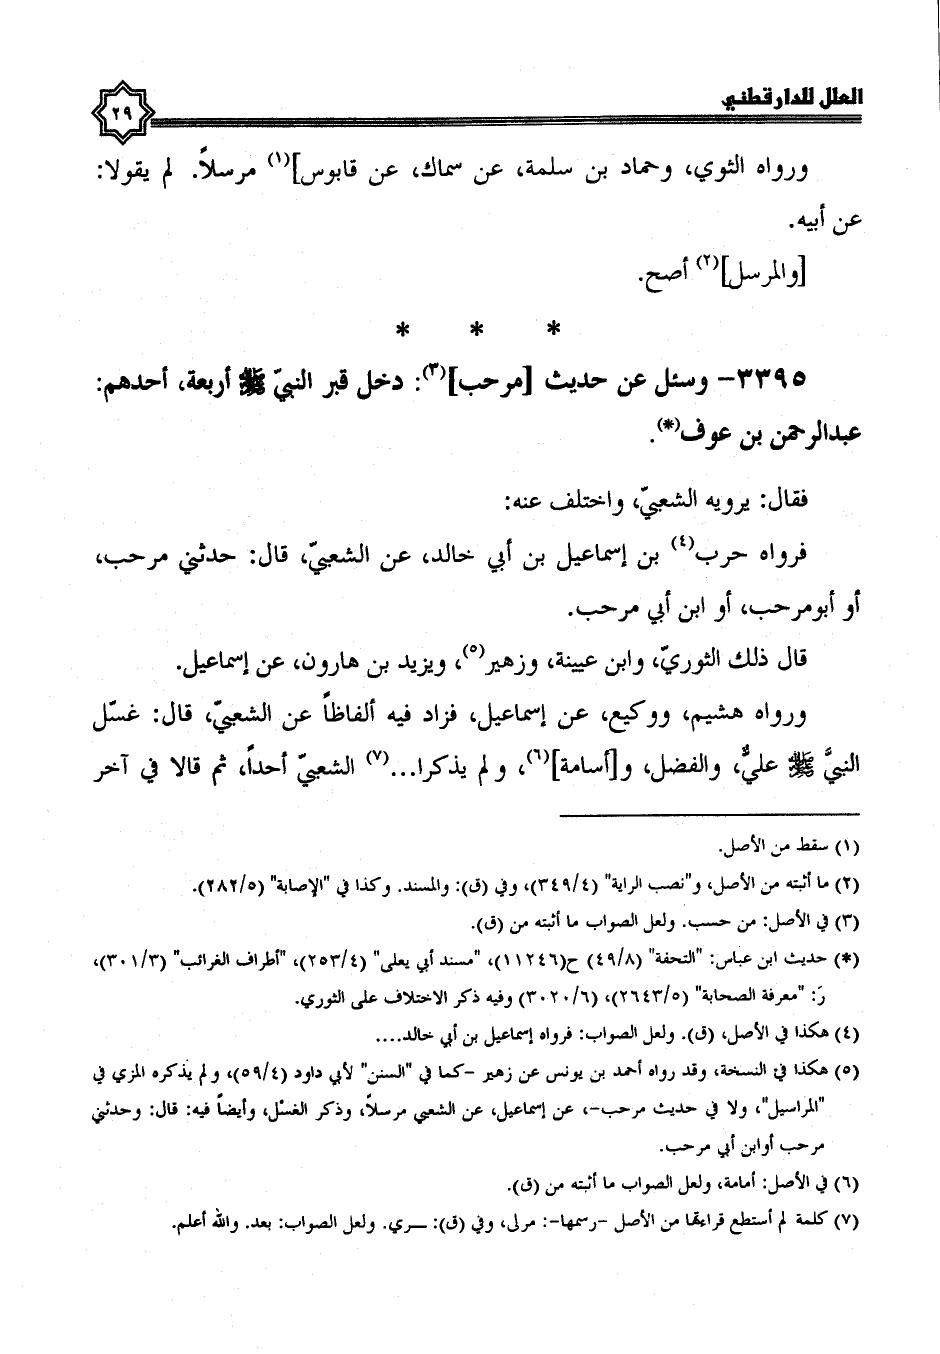 العلل للدارقطني
٢٩
ورواه الثوي، وحماد بن سلمة، عن سماك، عن قابوس](١) مرسلاً. لم يقولا:
عن أبيه.
[والمرسل](٢) أصح.
* * *
٣٣٩٥- وسئل عن حديث [مرحب](٣): دخل قبر النبيّ ﷺ أربعة، أحدهم:
عبدالرحمن بن عوف(*).
فقال: يرويه الشعبيّ، واختلف عنه:
فرواه حرب(٤) بن إسماعيل بن أبي خالد، عن الشعبيّ، قال: حدثني مرحب،
أو أبومرحب، أو ابن أبي مرحب.
قال ذلك الثوريّ، وابن عيينة، وزهير(٥)، ويزيد بن هارون، عن إسماعيل.
ورواه هشيم، ووكيع، عن إسماعيل، فزاد فيه ألفاظاً عن الشعبيّ، قال: غسّل
النبيَّ ﷺ عليٌّ، والفضل، و[أسامة](٦)، ولم يذكرا...(٧) الشعبيّ أحداً، ثم قالا في آخر
(١) سقط من الأصل.
(٢) ما أثبته من الأصل، و"نصب الراية" (٣٤٩/٤)، وفي (ق): والمسند. وكذا في "الإصابة" (٢٨٢/٥).
(٣) في الأصل: من حسب. ولعل الصواب ما أثبته من (ق).
(*) حديث ابن عباس: "التحفة" (٤٩/٨) ح(١١٢٤٦)، "مسند أبي يعلى" (٢٥٣/٤)، "أطراف الغرائب" (٣٠١/٣)،
رَ: "معرفة الصحابة" (٢٦٤٣/٥)، (٣٠٢٠/٦) وفيه ذكر الاختلاف على الثوري.
(٤) هكذا في الأصل، (ق). ولعل الصواب: فرواه إسماعيل بن أبي خالد....
(٥) هكذا في النسخة، وقد رواه أحمد بن يونس عن زهير -كما في "السنن" لأبي داود (٥٩/٤)، ولم يذكره المزي في
"المراسيل"، ولا في حديث مرحب-، عن إسماعيل، عن الشعبي مرسلاً، وذكر الغسْل، وأيضاً فيه: قال: وحدثني
مرحب أوابن أبي مرحب.
(٦) في الأصل: أمامة، ولعل الصواب ما أثبته من (ق).
(٧) كلمة لم أستطع قراءتها من الأصل -رسمها-: مرلى، وفي (ق): ـــري. ولعل الصواب: بعد. والله أعلم.